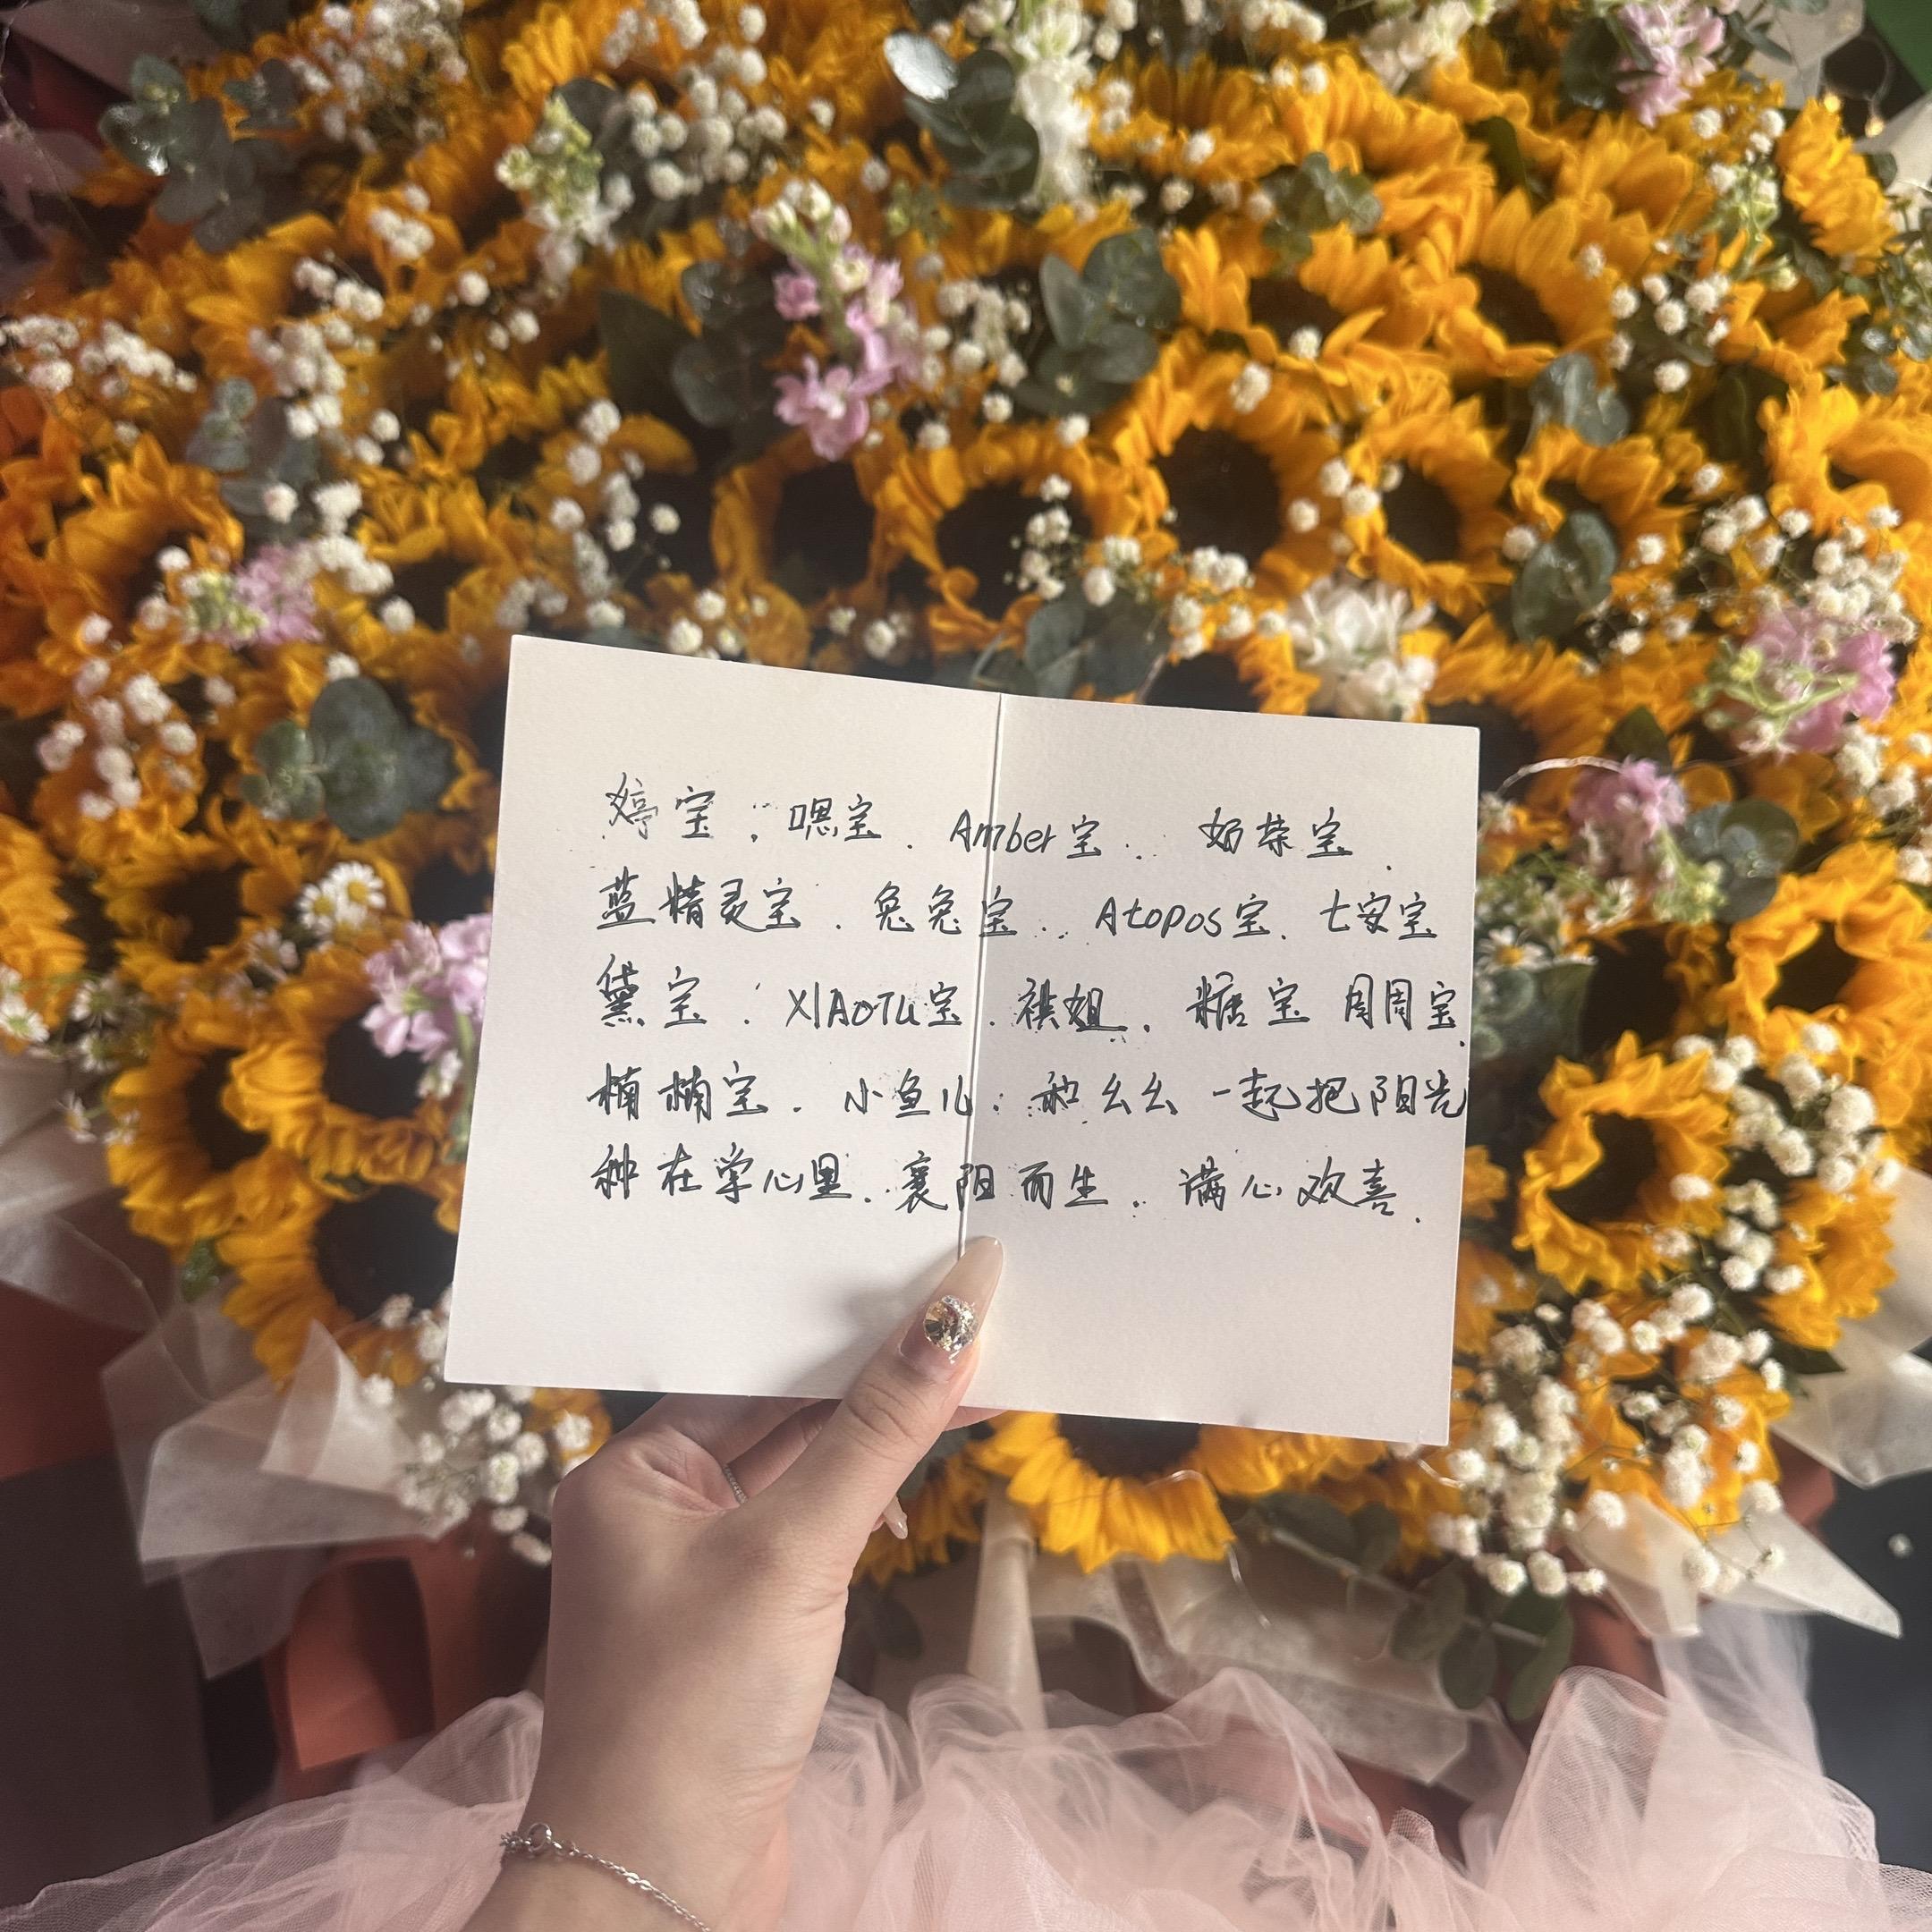 婷宝、嗯宝、Amber宝、奶茶宝、
蓝精灵宝、兔兔宝、Atopos宝、七安宝
黛宝、XIAOTU宝、祺姐、糖宝 周周宝、
楠楠宝、小鱼儿、和幺幺一起把阳光
种在掌心里、襄阳而生、满心欢喜.